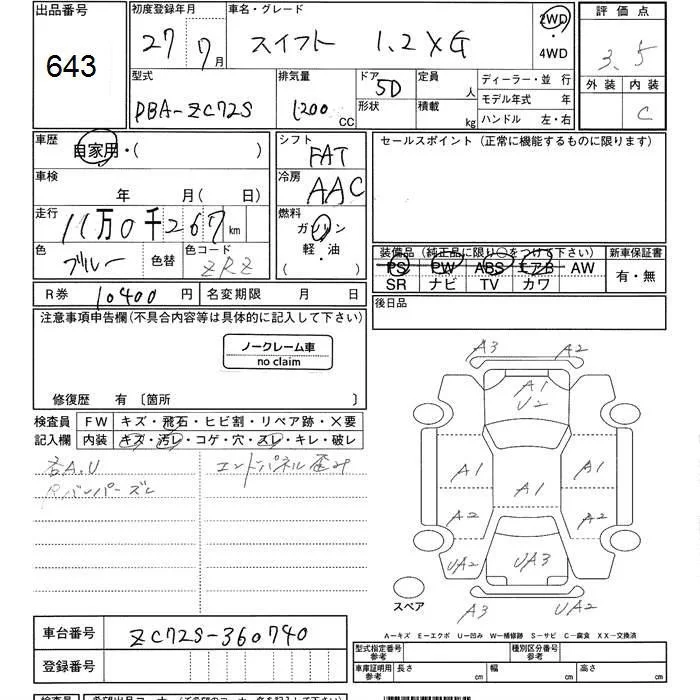 出品番号
643
初度登録年月
27 7月
車名・グレード
スイフト 1.2 XG
2WD
・
4WD
評価点
3.5
外装 内装
C
型式
DBA-ZC72S
排気量
1200 CC
ドア 5D
形状
定員 人
積載 kg
ディーラー・並行
モデル年式 年
ハンドル 左・右
車歴
自家用・( )
シフト
FAT
セールスポイント(正常に機能するものに限ります)
車検
年 月(日)
冷房
AAC
走行
11万0千267km
燃料
ガソリン
軽・油
( )
色
ブルー
色替
色コード
ZRZ
装備品(純正品に限り○をつけて下さい)
PS PW ABS エアB AW
SR ナビ TV カワ
新車保証書
有・無
R券 10400円
名変期限 月 日
後日品
注意事項申告欄(不具合内容等は具体的に記入して下さい)
ノークレーム車
no claim
修復歴 有〔箇所 〕
検査員
記入欄
FW キズ・飛石・ヒビ割・リペア跡・×要
内装 キズ・汚レ・コゲ・穴・スレ・キレ・破レ
各A.U
Rバンパーズレ
エンドパネル歪み
A3 A2
A1
U2
A1 A1 A1
A2 A2
UA2 UA3 UA2
A3 UA2
スペア
A-キズ E-エクボ U-凹み W-補修跡 S-サビ C-腐食 XX-交換済
車台番号
ZC72S-360740
登録番号
型式指定番号
参考
種別区分番号
参考
車庫証明用
参考
長さ cm
幅 cm
高さ cm